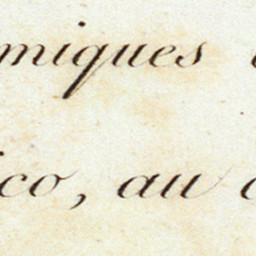 miques
ico, au